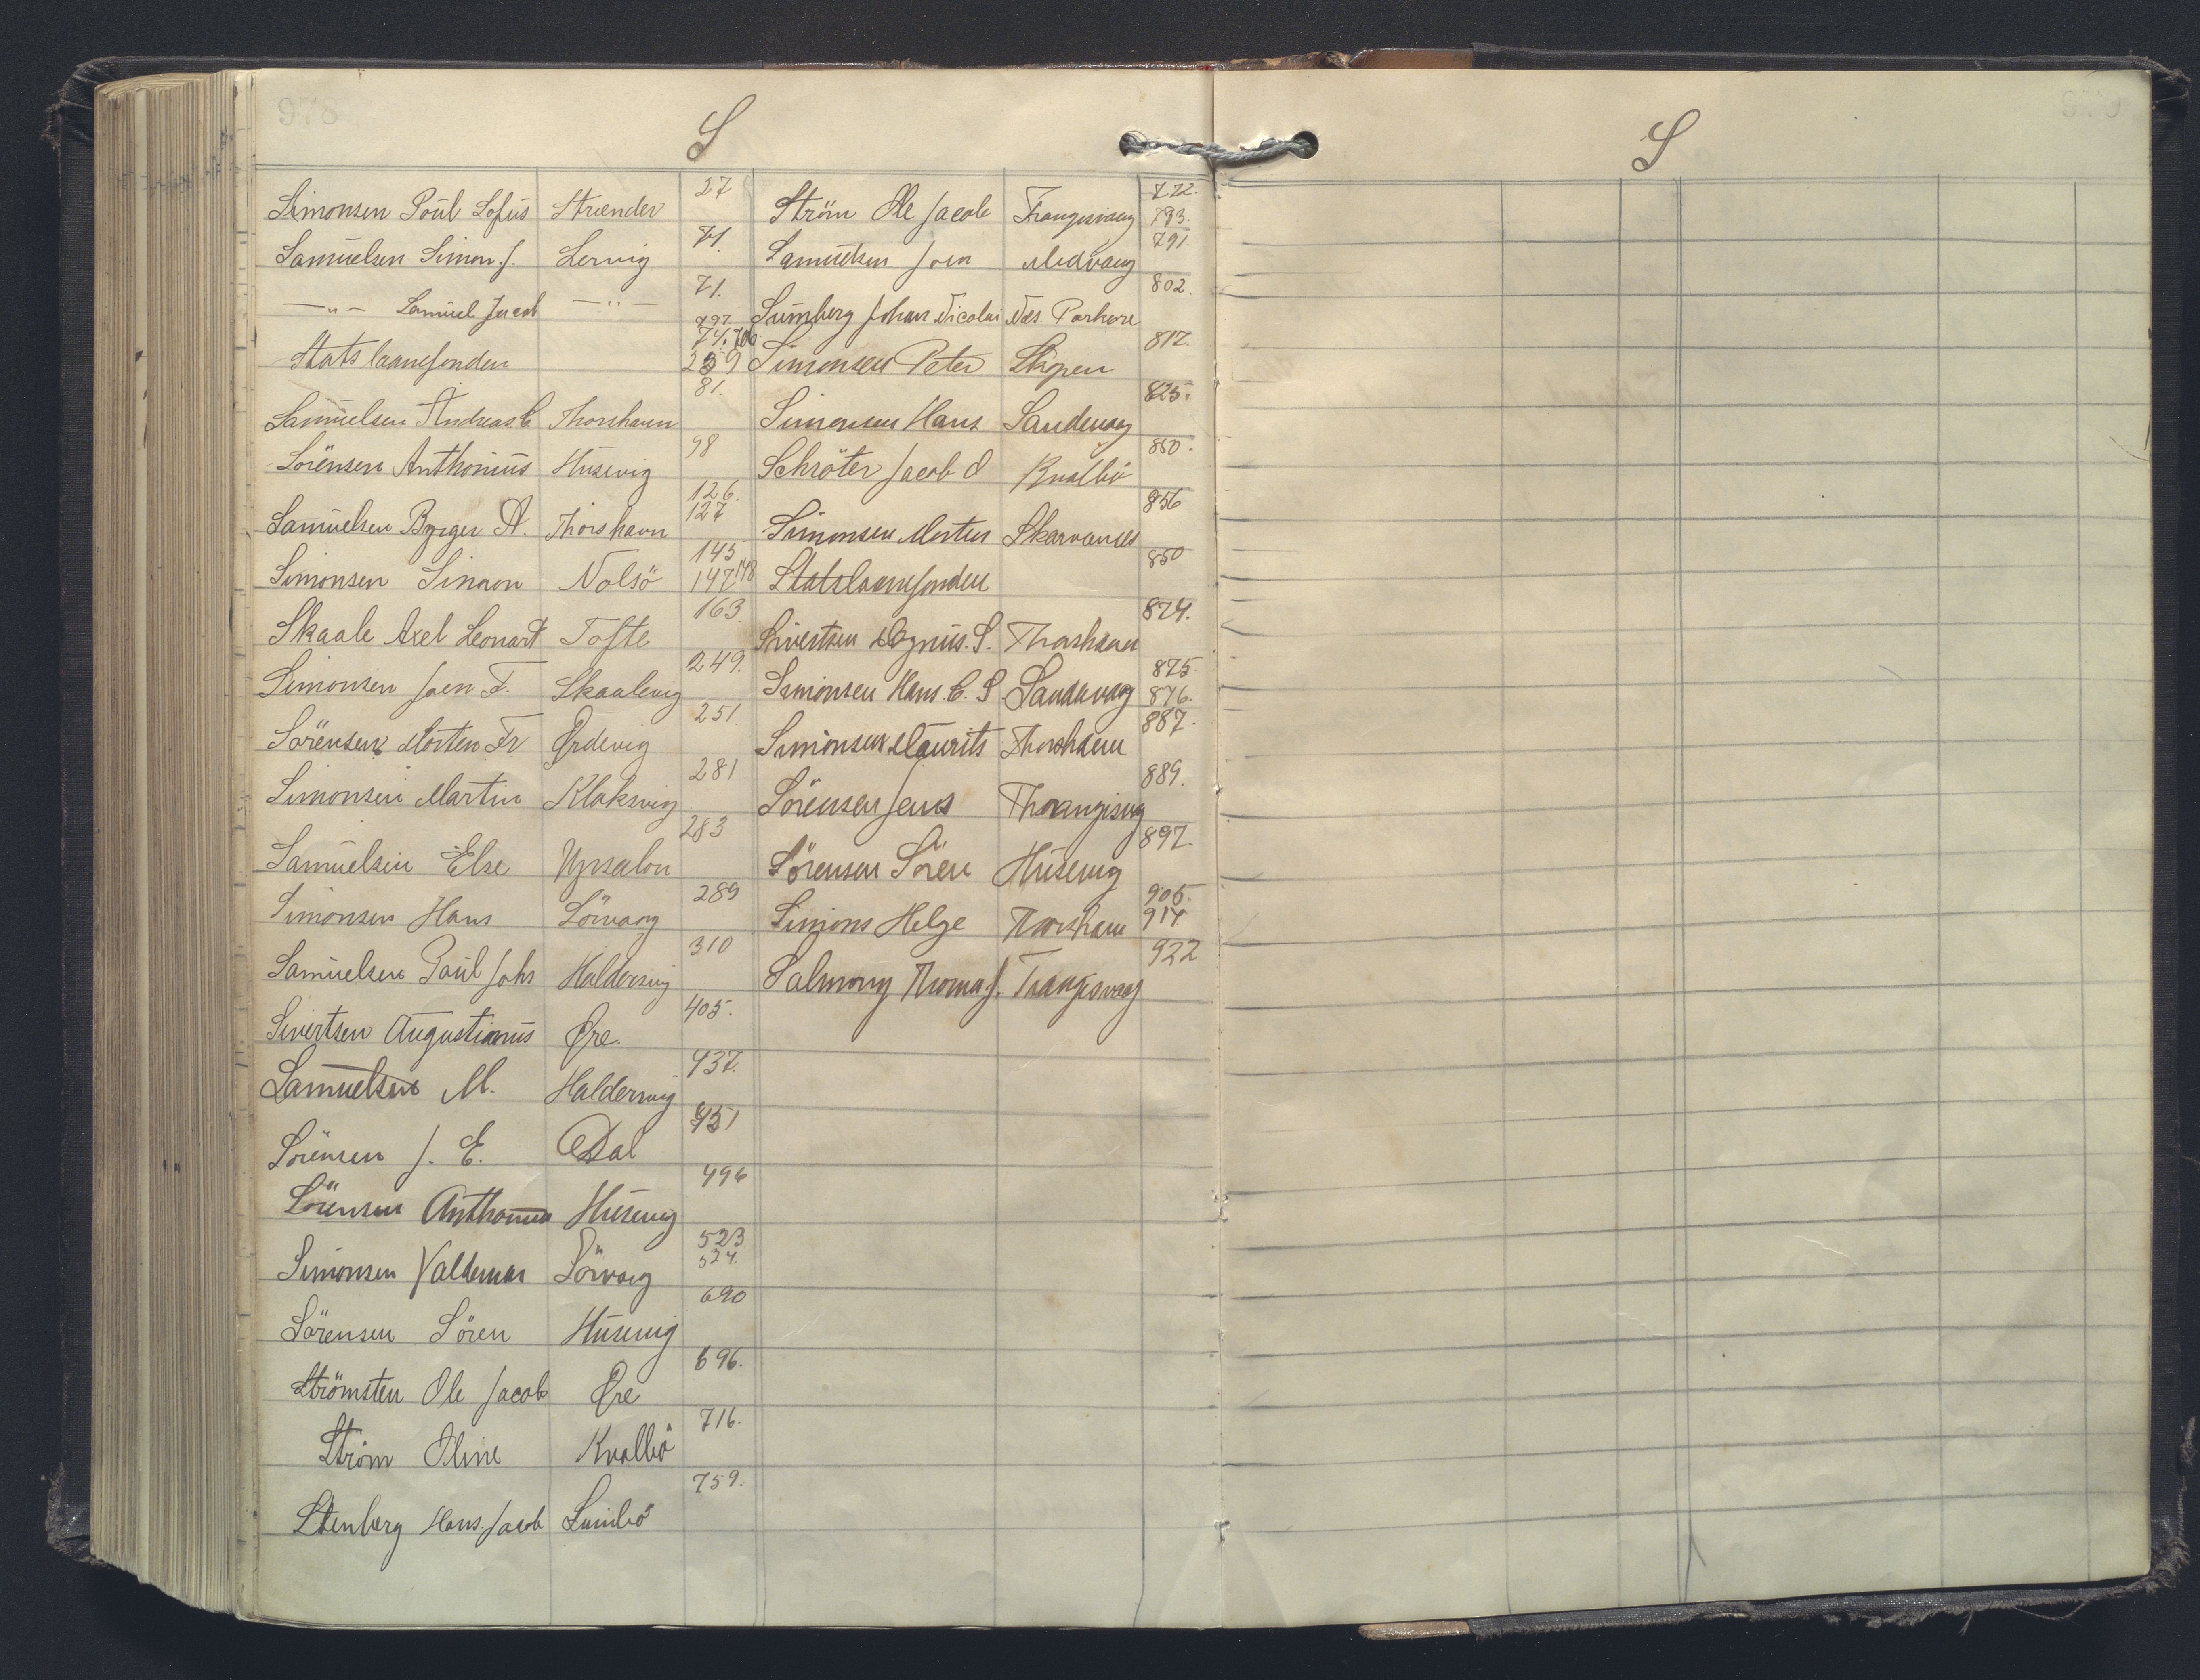 978
S
Simonsen Poul Sofus Strænder 27
Samuelsen Simon J. Lervig 71.
—"— Samuel Jacob —"— 71.
Statslaanefonden 797. 74. 706 259
Samuelsen Andreas C. Thorshavn 81.
Sörensen Anthonius Husevig 98
Samuelsen Byrger A. Thorshavn 126. 127
Simonsen Simon Nolsö 145 147 148
Skaale Axel Leonart Tofte 163.
Simonsen Joen F. Skaalevig 249.
Sörensen Morten Fr Ördevig 251
Simonsen Martin Klaksvig 281
Samuelsen Else Upsalon 283
Simonsen Hans Sörvaag 289
Samuelsen Poul Johs Haldersvig 310
Sivertsen Augustinus Øre. 405.
Samuelsen M. Haldersvig 437.
Sörensen J. E. Dal 451
Sörensen Anthonius Husevig 496
Simonsen Valdemar Sörvaag 523 524.
Sörensen Sören Husevig 690
Strömsten Ole Jacob Øre 696.
Ström Oline Kvalbö 716.
Stenberg Hans Jacob Sumbö 759.
Ström Ole Jacob Frangisvaag 772. 793.
Samuelsen Joen Midvaag 791
Sumberg Johan Nicolai Næs. Porkere 802.
Simonsen Peter Skopen 817.
Simonsen Hans Sandevaag 825.
Schröter Jacob d Kvalbö 850.
Simonsen Morten Skarvanes 856
Statslaanefonden 850
Sivertsen Magnus. S. Thorshavn 874.
Simonsen Hans. C. S. Sandevaag 875. 876.
Simonsen Maurits Thorshavn 887.
Sörensen Jens Thrangisvg 889.
Sörensen Sören Husevig 897.
Simons Helge Thorshavn 905. 914
Salmony Thomas J. Trangisvaag 922
S